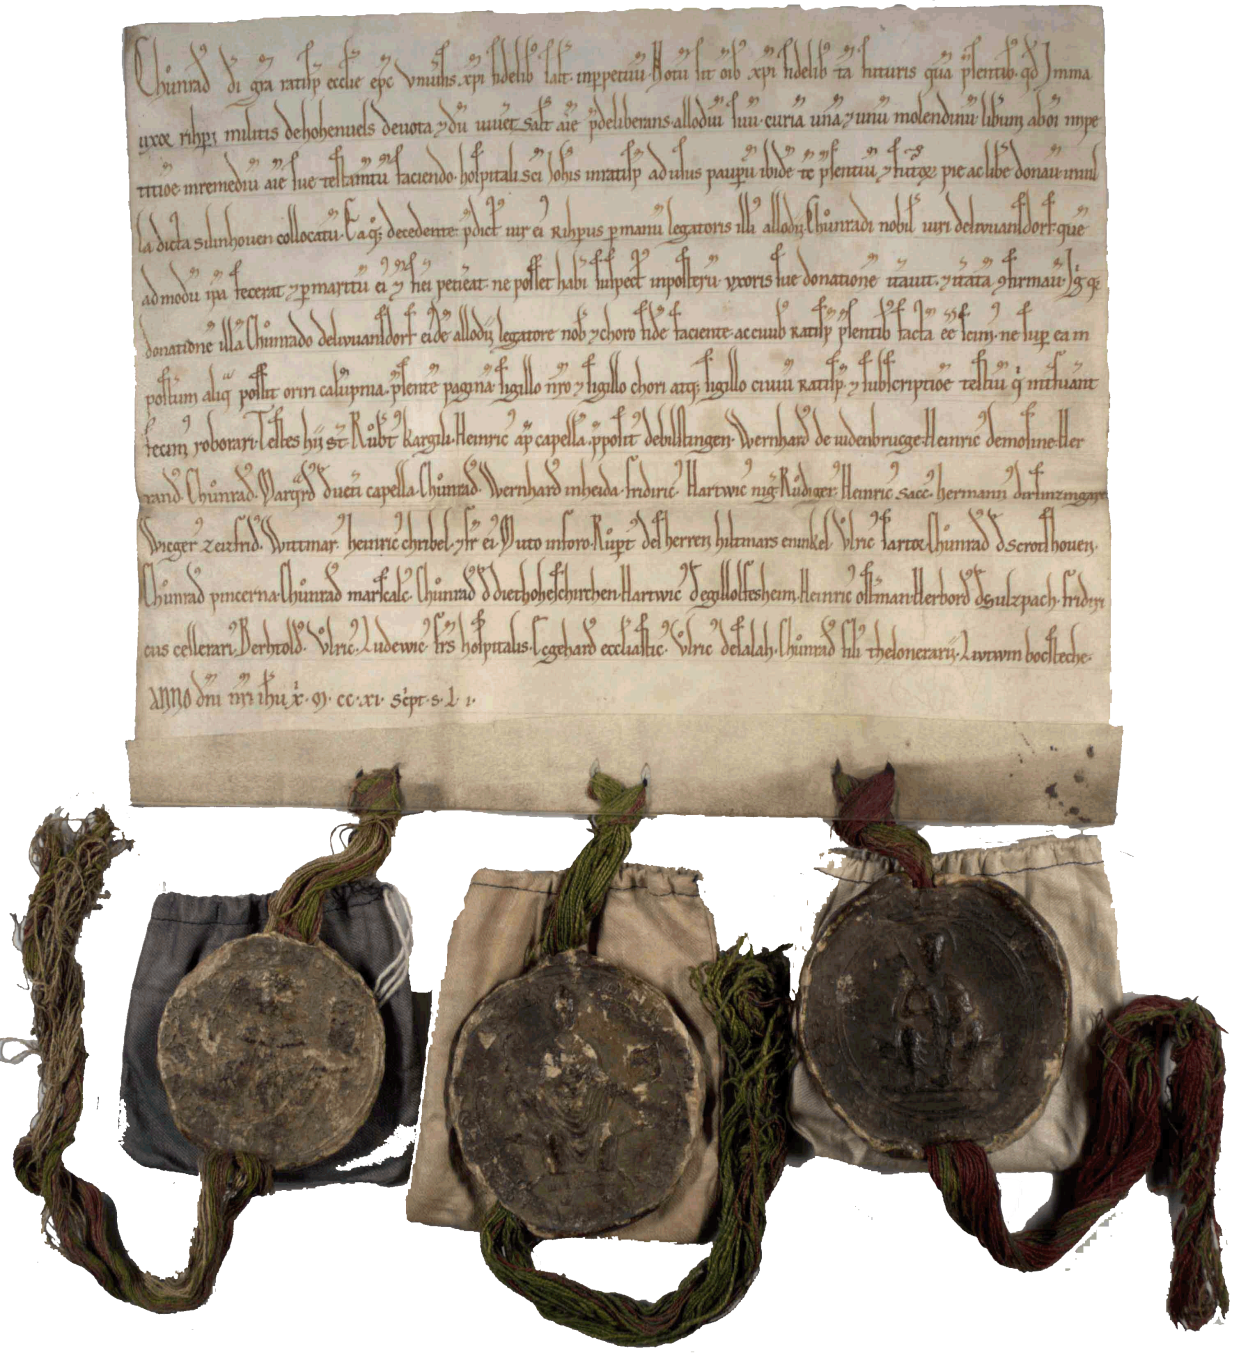 Chůnrad di gra ratisp ecclie epc vnivsis xpi fidelib salt inppetuu. Notu sit oib xpi fidelib ta futuris qua psentib. qd Imma
uxor rihpi militis de hohenuels deuota & du uiuet salt aie pdeliberans. allodiu suu. curia una & unu molendinu. libum aboi impe
titioe inremediu aie sue testamtu faciendo. hospitali sci Iohis inratisp ad usus paupu ibide ta psentiu & futor. pie ac libe donauit
la dicta silinhouen collocatu. Eaq; decedente pdict uir ei Rihpus p manu legatoris illi allodij Chůnradi nobil uiri de
admodu ipa fecerat & p maritu ei & fieri petierat. ne posset haberi suspect inposteru. uxoris sue donatione & firmauit. Igr q;
donatione illa Chůnrado eide allodij legatore nob & choro fide faciente. ac ciuib Ratisp psentib facta ee scim. ne sup ea in
postum aliq possit oriri calupnia. psente pagina sigillo nro & sigillo chori atq; sigillo ciuiu Ratisp. & subscriptioe testiu q intfuant
fecim roborari. Testes hij st. Růbt kargil. Heinric ap capella. pposit debisstingen. Wernhard de iudenbrucge. Heinric demosine. Her
rand. Chůnrad. Marqrd dueti capella. Chůnrad. Wernhard inheida. fridiric. Hartwic nig. Růdiger. Heinric sacc. hermann
Wicger zeizfrid. Wittmar. heinric chribel. & fr ei. Muto inforo. Růpt des herren hiltmars eninkel. Vlric Chůnrad d scrothouen.
Chůnrad pincerna. Chůnrad marscalc. Chůnrad d diethoheschirchen. Hartwic degillolfesheim. Heinric ostman. Herbord dsulzpach. fridiri
cus cellerari. Berhtold. Vlric. Ludewic. frs hospitalis. Eegehard eccliastic. Vlric desalah. Chůnrad fili thelonerarij. Livtwin bocsteche.
ANNO dni nri ihu x. M. cc. xi. scipt. s. l. i.